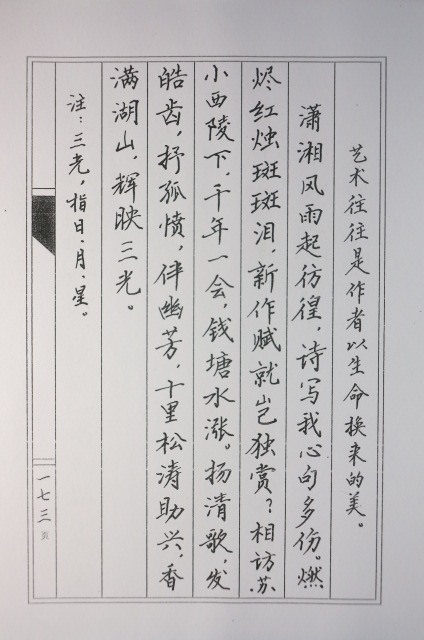 艺术往往是作者以生命换来的美。
潇湘风雨起彷徨，诗写我心句多份。燃
烬红烛斑斑泪，新作赋就岂独赏？相访苏
小西陵下，千年一会，钱塘水涨。扬清歌，发
皓齿，抒孤愤，伴幽芳，十里松涛助兴，香
满湖山，辉映三光。
注：三光，指日、月、星。
一七三页